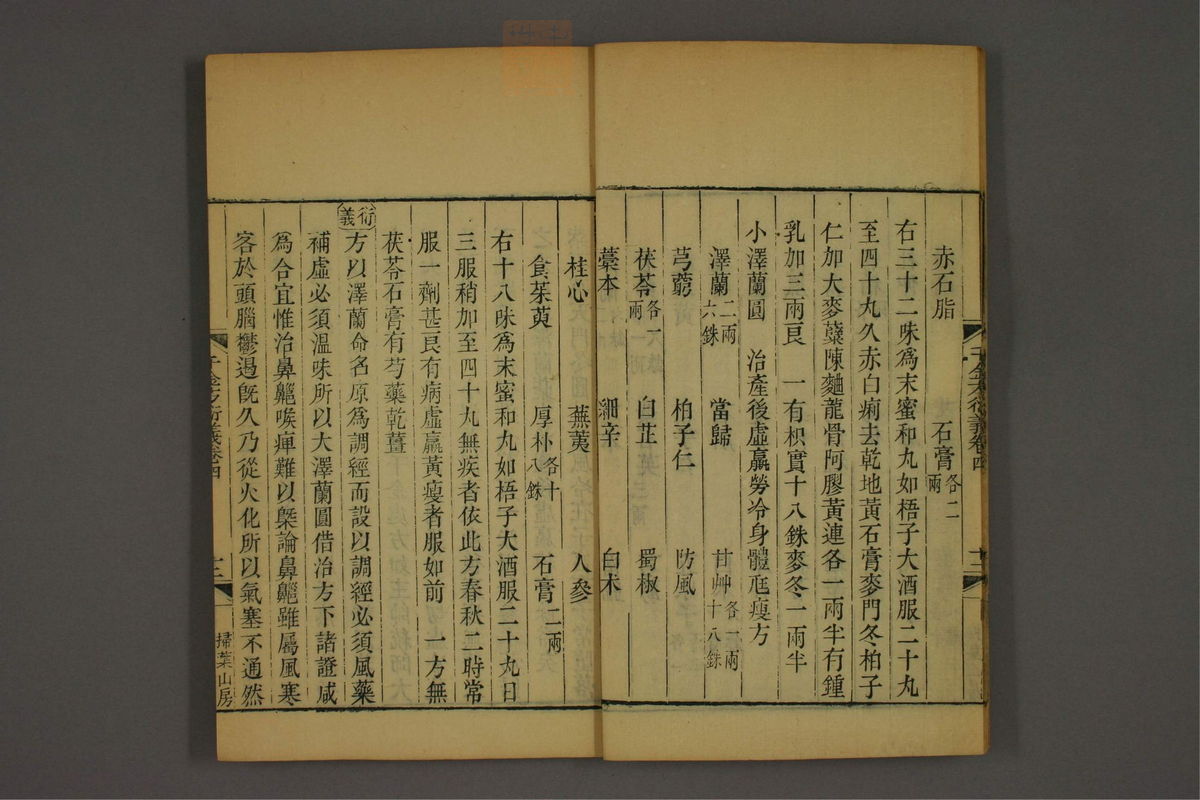 赤石脂 石膏各二兩
右三十二味爲末蜜和丸如梧子大酒服二十丸
至四十丸久赤白痢去乾地黃石膏麥門冬柏子
仁加大麥糵陳麯龍骨阿膠黃連各一兩半有鍾
乳加三兩良 一有枳實十八銖麥冬一兩半
小澤蘭圓 治產後虛羸勞冷身體尫瘦方
澤蘭二兩六銖 當歸 甘艸各一兩十八銖
芎藭 柏子仁 防風
茯苓各一兩 白芷 蜀椒
藁本 細辛 白朮
桂心 蕪荑 人參
食茱萸 厚朴各十八銖 石膏二兩
右十八味爲末蜜和丸如梧子大酒服二十丸日
三服稍加至四十丸無疾者依此方春秋二時常
服一劑甚良有病虛羸黃瘦者服如前 一方無
茯苓石膏有芍藥乾薑
衍義 方以澤蘭命名原爲調經而設以調經必須風藥
補虛必須溫味所以大澤蘭圓借治方下諸證咸
爲合宜惟治鼻衄喉痺難以槩論鼻衄雖屬風寒
客於頭腦鬱遏旣久乃從火化所以氣塞不通然
千金方衍義卷四
十二
掃葉山房